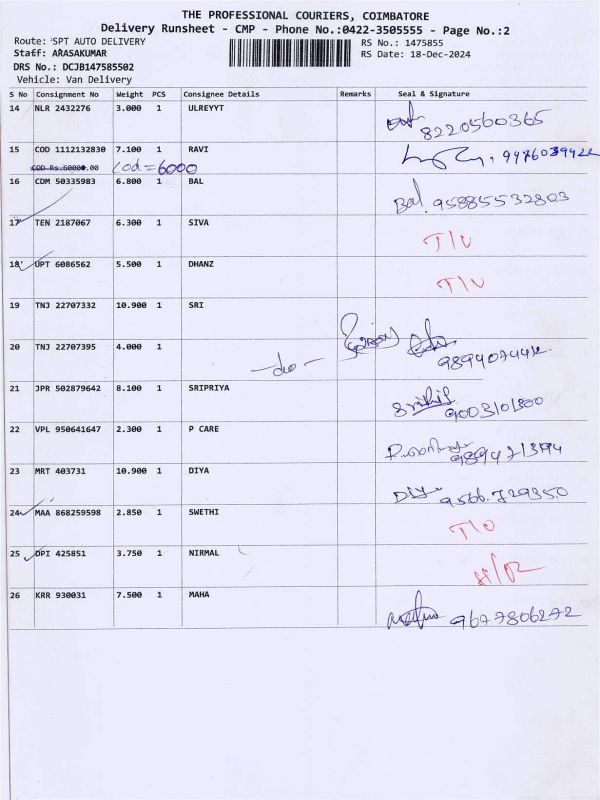 THE PROFESSIONAL COURIERS, COIMBATORE
Delivery Runsheet - CMP - Phone No.:0422-3505555 - Page No.:2
Route: SPT AUTO DELIVERY RS No.: 1475855
Staff: ARASAKUMAR RS Date: 18-Dec-2024
DRS No.: DCJB147585502
Vehicle: Van Delivery
S No Consignment No Weight PCS Consignee Details Remarks Seal & Signature
14 NLR 2432276 3.000 1 ULREYYT
8220560365
15 COD 1112132830 7.100 1 RAVI
COD Rs.60000.00 Cod = 6000
16 CDM 50335983 6.800 1 BAL
Bal. 95885532803
17 TEN 2187067 6.300 1 SIVA
18 UPT 6086562 5.500 1 DHANZ
19 TNJ 22707332 10.900 1 SRI
20 TNJ 22707395 4.000 1
- do -
21 JPR 502879642 8.100 1 SRIPRIYA
22 VPL 950641647 2.300 1 P CARE
23 MRT 403731 10.900 1 DIYA
9566.729350
24 MAA 868259598 2.850 1 SWETHI
25 DPI 425851 3.750 1 NIRMAL
26 KRR 930031 7.500 1 MAHA
9677806272